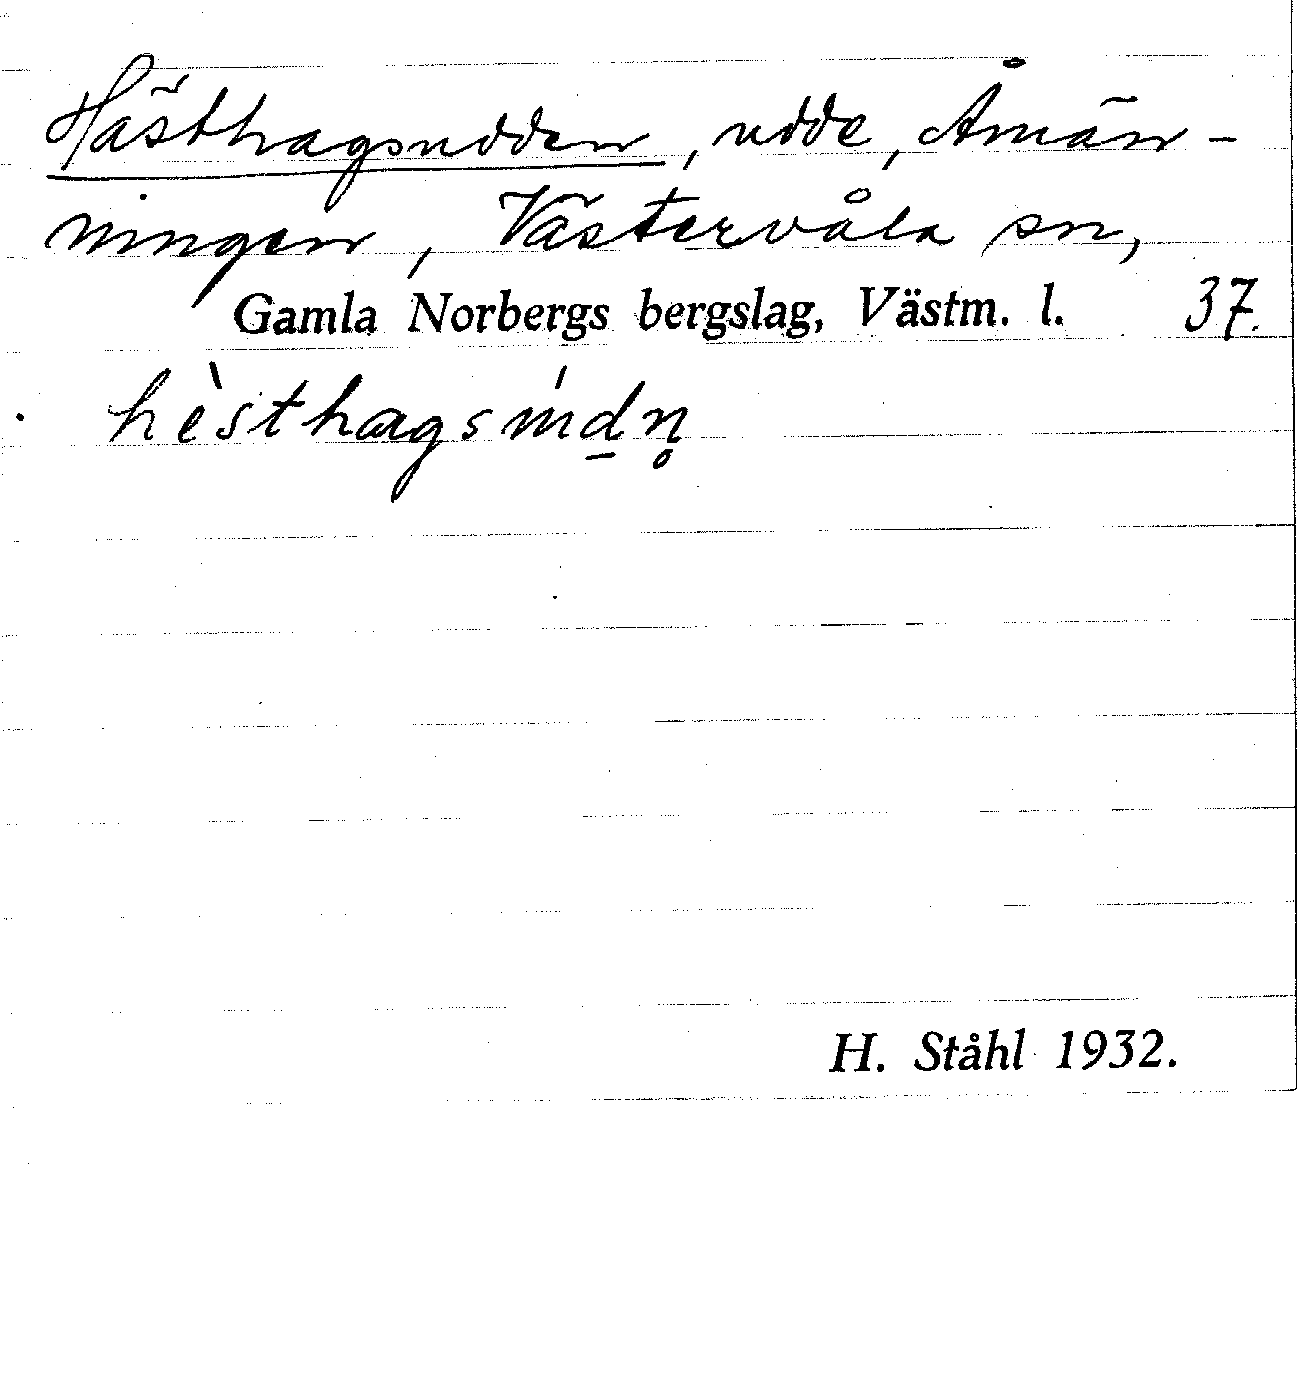 Hästhagsudden, udde, Åmän-
ningen, Västervåla sn,
Gamla Norbergs bergslag, Västm. l. 37.
H. Ståhl 1932.